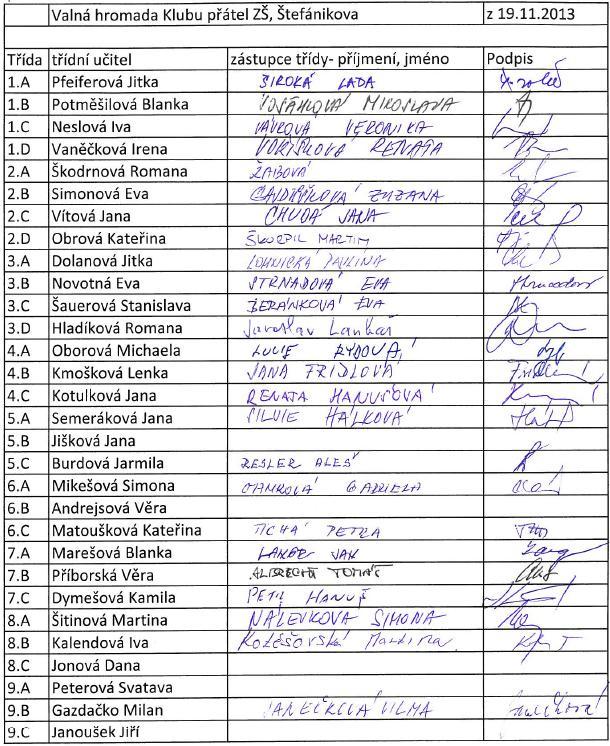 Valná hromada Klubu přátel ZŠ, Štefánikova z 19.11.2013
Třída třídní učitel zástupce třídy- příjmení, jméno Podpis
1.A Pfeiferová Jitka ŠIROKÁ LADA
1.B Potměšilová Blanka MIROSLAVA
1.C Neslová Iva VÁVROVÁ VERONIKA
1.D Vaněčková Irena RENATA
2.A Škodrnová Romana ŽABOVÁ
2.B Simonová Eva ZUZANA
2.C Vítová Jana CHUDÁ JANA
2.D Obrová Kateřina ŠKORPIL MARTIN
3.A Dolanová Jitka PAVLÍNA
3.B Novotná Eva STRNADOVÁ EVA
3.C Šauerová Stanislava BERÁNKOVÁ EVA
3.D Hladíková Romana Jaroslav
4.A Oborová Michaela LUCIE RYDOVÁ
4.B Kmošková Lenka JANA FRIDLOVÁ
4.C Kotulková Jana RENATA HANUŠOVÁ
5.A Semeráková Jana SILVIE HÁLKOVÁ
5.B Jišková Jana
5.C Burdová Jarmila RESLER ALEŠ
6.A Mikešová Simona GABRIELA
6.B Andrejsová Věra
6.C Matoušková Kateřina TICHÁ PETRA
7.A Marešová Blanka LANGER JAN
7.B Příborská Věra ALBRECHT TOMÁŠ
7.C Dymešová Kamila PETR HANUŠ
8.A Šitinová Martina NÁLEVKOVÁ SIMONA
8.B Kalendová Iva Martina
8.C Jonová Dana
9.A Peterová Svatava
9.B Gazdačko Milan JANEČKOVÁ VILMA
9.C Janoušek Jiří